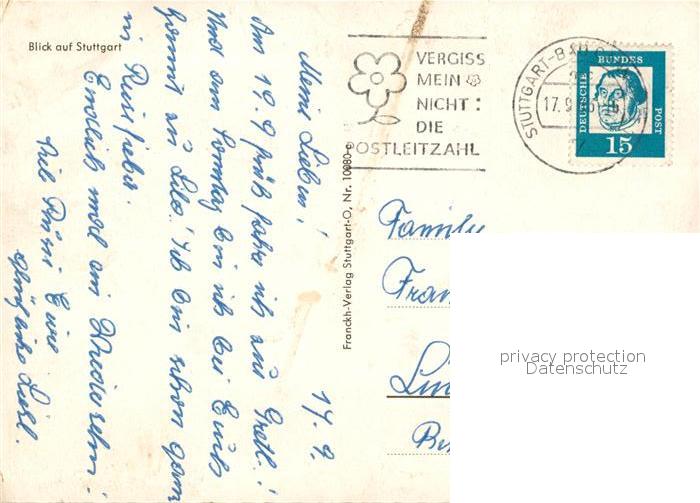 Blick auf Stuttgart
17. 9.
Meine Lieben!
Am 19. 9 früh fahre ich zur Gretl.!
Und am Sonntag bin ich bei Euch
kommt zu Lilo! Ich bin schon ganz
in Reisefieber.
Endlich mal ein Wiedersehn!
Viele Grüße Eure
Liesl.
Franckh-Verlag Stuttgart-O, Nr. 10080-e
VERGISS
MEIN
NICHT:
DIE
POSTLEITZAHL
STUTTGART-BAD
17.9.
DEUTSCHE
BUNDES
POST
15
Familie
Fran
Lin
privacy protection
Datenschutz